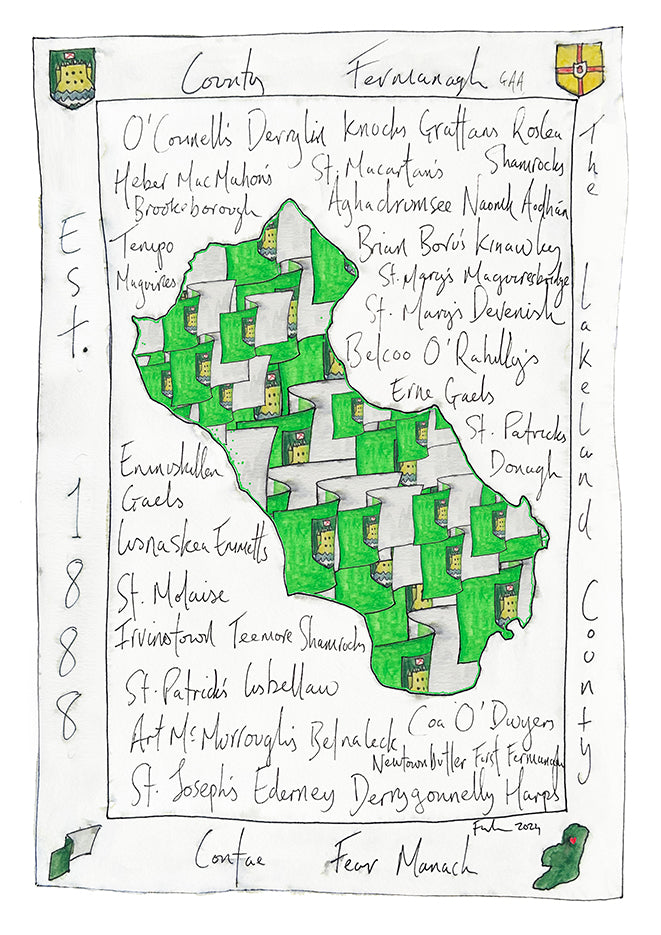 County Fermanagh GAA
O'Connell's Derrylin Knocks Grattans Roslea
Shamrocks
Heber MacMahon's
Brookeborough
St. Macartan's
Aghadrumsee Naomh Aodhán
Tempo
Maguires
Brian Boru's Kinawley
St. Mary's Maguiresbridge
St. Mary's Devenish
Belcoo O'Rahilly's
Erne Gaels
St. Patricks
Donagh
Enniskillen
Gaels
Lisnaskea Emmetts
St. Molaise
Irvinestown Teemore Shamrocks
St. Patrick's Lisbellaw
Art McMurrough's Belnaleck
Coa O'Dwyers
Newtownbutler First Fermanagh
St. Joseph's Ederney Derrygonnelly Harps
2024
Est. 1888
The Lakeland County
Contae Fear Manach